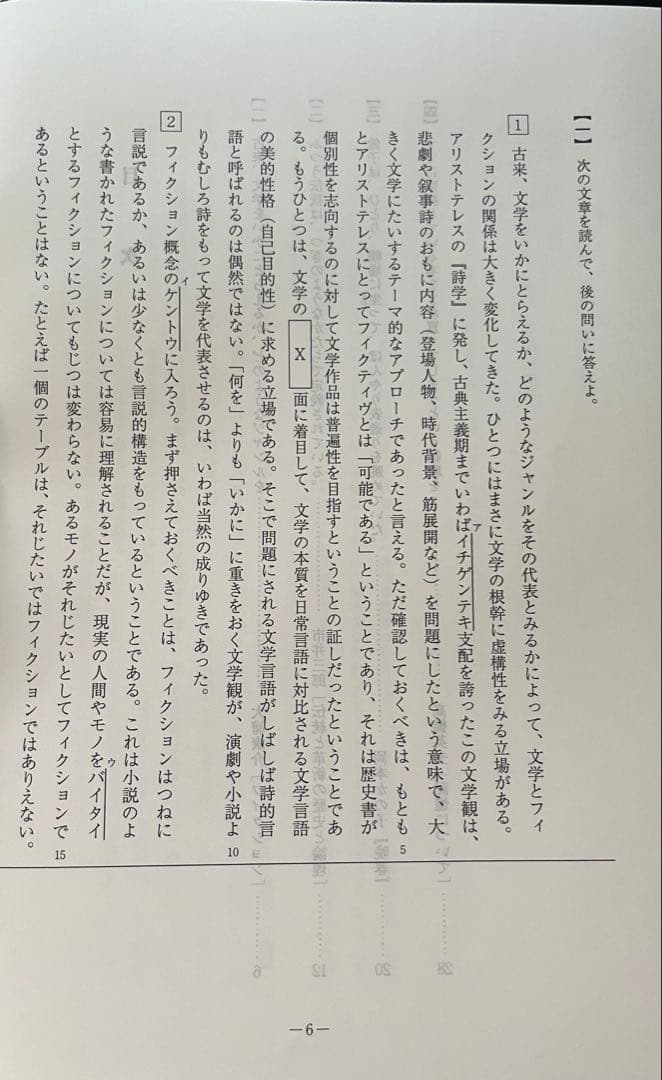 【一】 次の文章を読んで、後の問いに答えよ。
1 古来、文学をいかにとらえるか、どのようなジャンルをその代表とみるかによって、文学とフィ
クションの関係は大きく変化してきた。ひとつにはまさに文学の根幹に虚構性をみる立場がある。
アリストテレスの『詩学』に発し、古典主義期までいわばイチゲンテキ支配を誇ったこの文学観は、
ア
悲劇や叙事詩のおもに内容（登場人物、時代背景、筋展開など）を問題にしたという意味で、大
きく文学にたいするテーマ的なアプローチであったと言える。ただ確認しておくべきは、もとも
5
とアリストテレスにとってフィクティヴとは「可能である」ということであり、それは歴史書が
個別性を志向するのに対して文学作品は普遍性を目指すということの証しだったということであ
る。もうひとつは、文学の X 面に着目して、文学の本質を日常言語に対比される文学言語
の美的性格（自己目的性）に求める立場である。そこで問題にされる文学言語がしばしば詩的言
語と呼ばれるのは偶然ではない。「何を」よりも「いかに」に重きをおく文学観が、演劇や小説よ
10
りもむしろ詩をもって文学を代表させるのは、いわば当然の成りゆきであった。
2 フィクション概念のケントウに入ろう。まず押さえておくべきことは、フィクションはつねに
イ
言説であるか、あるいは少なくとも言説的構造をもっているということである。これは小説のよ
うな書かれたフィクションについては容易に理解されることだが、現実の人間やモノをバイタイ
ウ
とするフィクションについてもじつは変わらない。あるモノがそれじたいとしてフィクションで
15
あるということはない。たとえば一個のテーブルは、それじたいではフィクションではありえない。
―6―